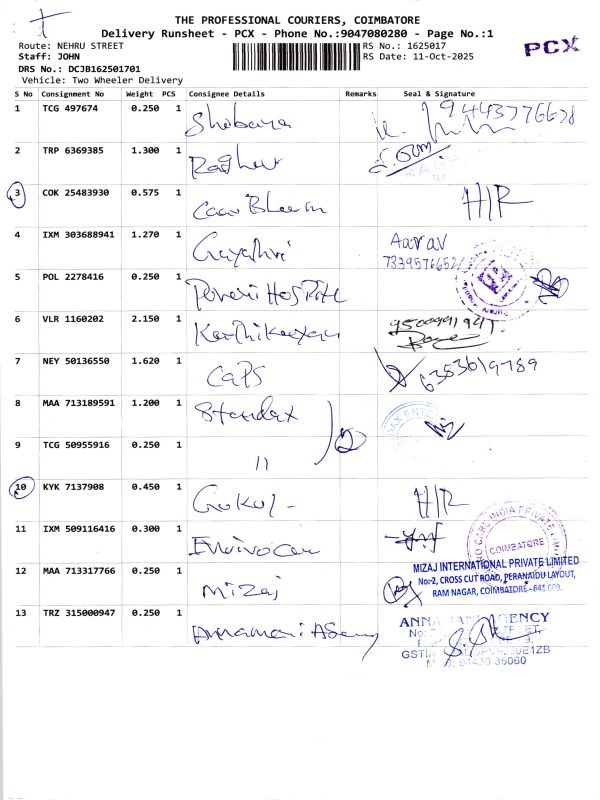 THE PROFESSIONAL COURIERS, COIMBATORE
Delivery Runsheet - PCX - Phone No.:9047080280 - Page No.:1
Route: NEHRU STREET
RS No.: 1625017
Staff: JOHN
RS Date: 11-Oct-2025
PCX
DRS No.: DCJB162501701
Vehicle: Two Wheeler Delivery
S No Consignment No Weight PCS Consignee Details Remarks Seal & Signature
1 TCG 497674 0.250 1 Shobana 9443776628
2 TRP 6369385 1.300 1
3 COK 25483930 0.575 1 H/R
4 IXM 303688941 1.270 1 Gayathri Aarav
7339576652
5 POL 2278416 0.250 1
6 VLR 1160202 2.150 1 Karthikeyan 9500991941
7 NEY 50136550 1.620 1 Caps 6353619789
8 MAA 713189591 1.200 1 Standax
9 TCG 50955916 0.250 1 11
10 KYK 7137908 0.450 1 Gokul - H/R
11 IXM 509116416 0.300 1 COIMBATORE
12 MAA 713317766 0.250 1 Mizaj
MIZAJ INTERNATIONAL PRIVATE LIMITED
No:2, CROSS CUT ROAD, PERANAIDU LAYOUT,
RAM NAGAR, COIMBATORE-641 009.
13 TRZ 315000947 0.250 1 Annamari Agency